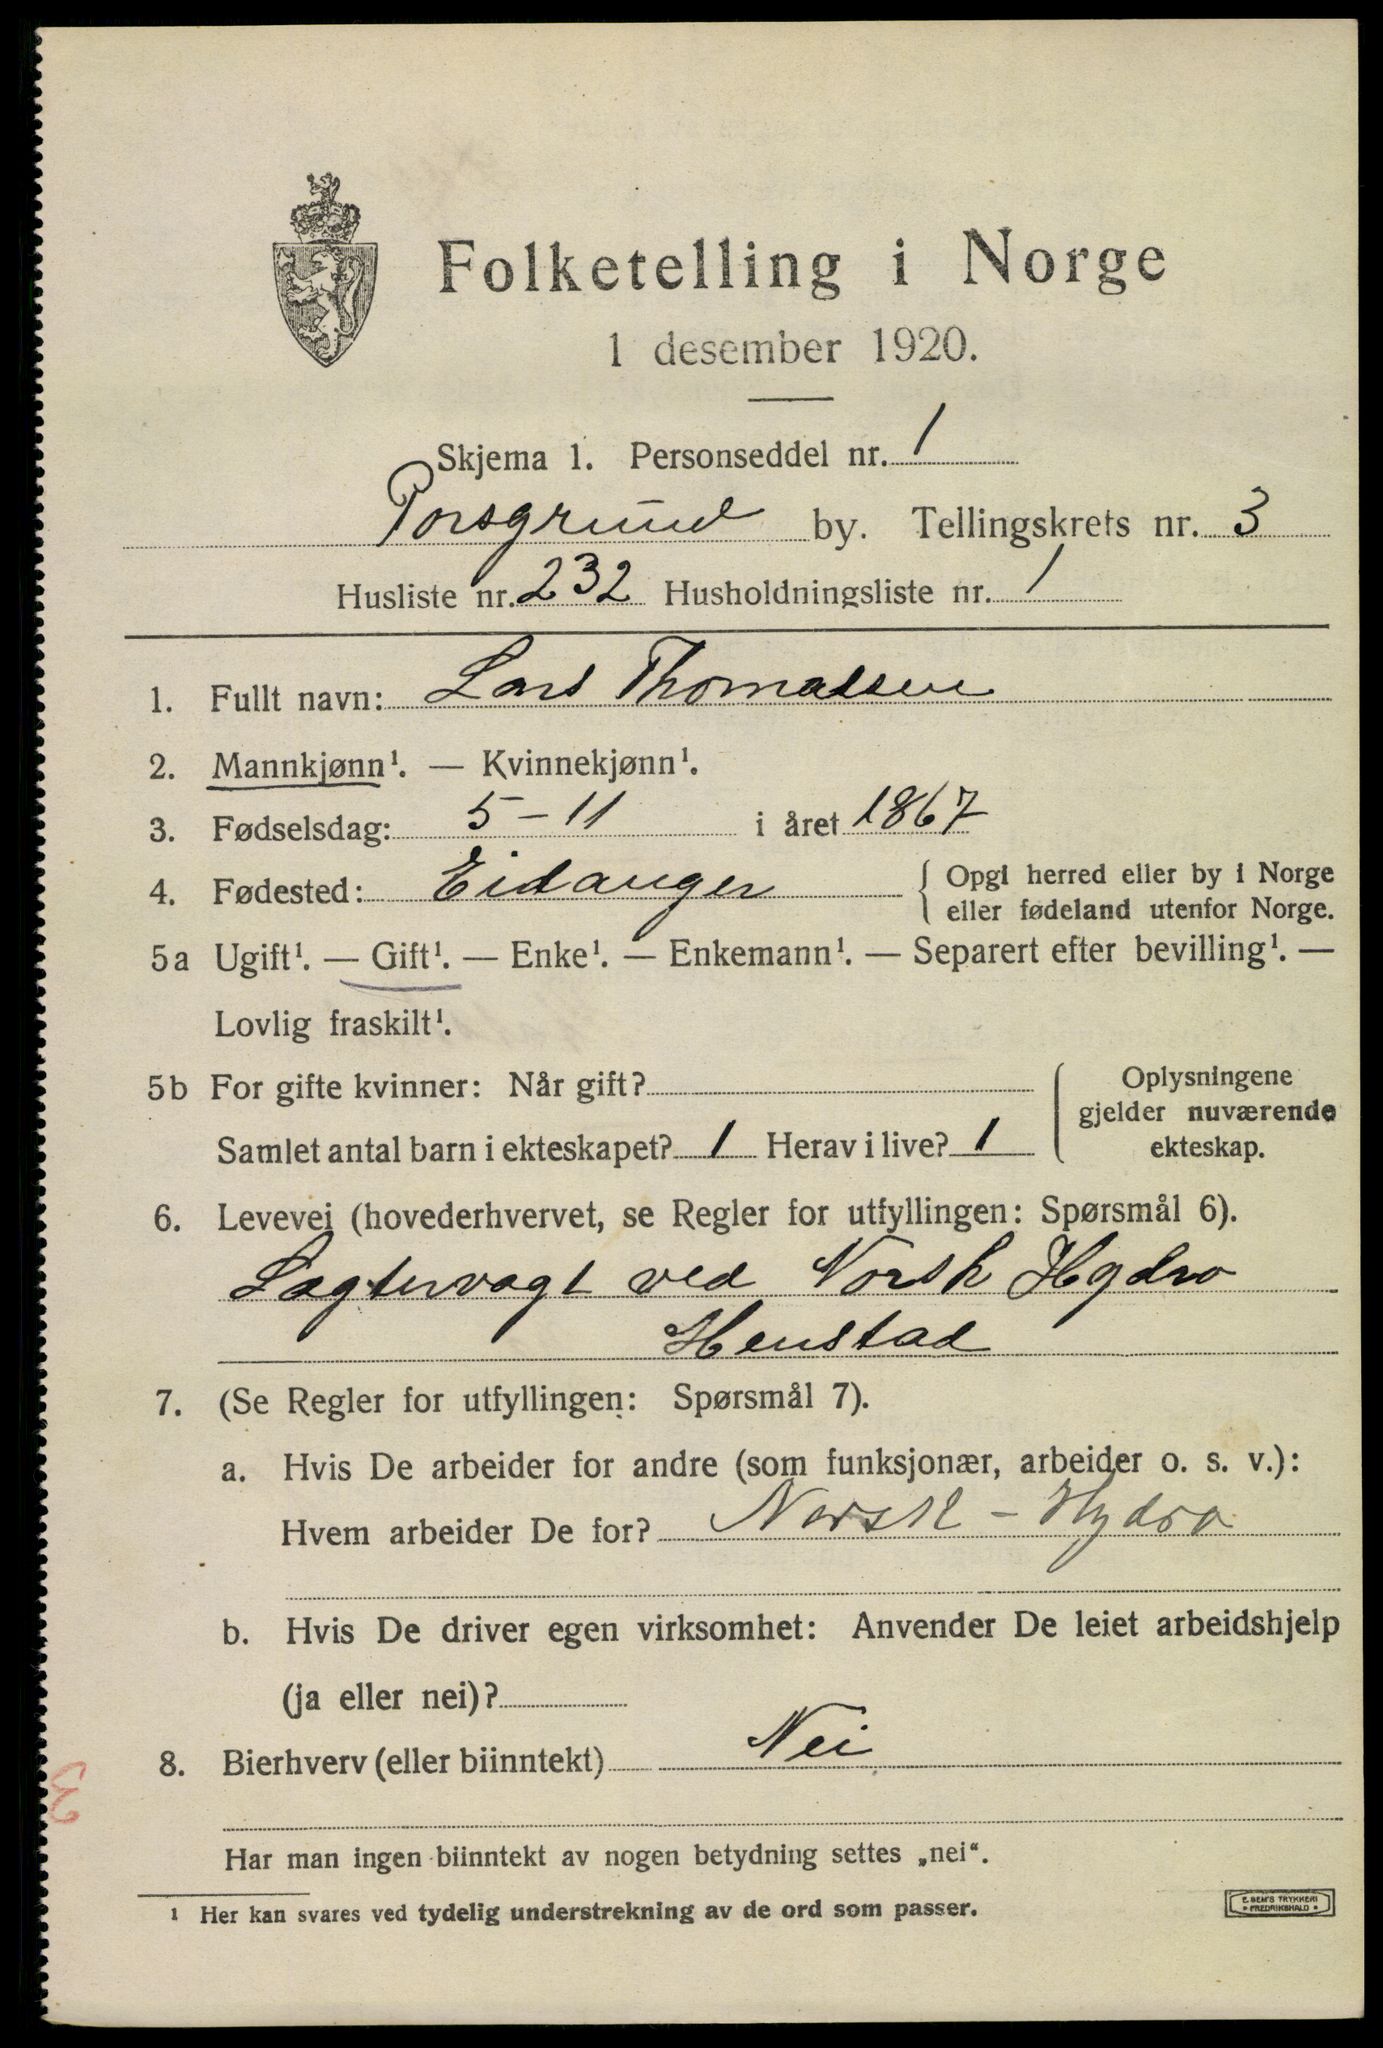 Folketelling i Norge
1 desember 1920.
Skjema 1. Personseddel nr. 1
Porsgrund by. Tellingskrets nr. 3
Husliste nr. 232 Husholdningsliste nr. 1
1. Fullt navn: Lars Thomassen
2. Mannkjønn¹. — Kvinnekjønn¹.
3. Fødselsdag: 5-11 i året 1867
4. Fødested: Eidanger { Opgi herred eller by i Norge
eller fødeland utenfor Norge.
5a Ugift¹. — Gift¹. — Enke¹. — Enkemann¹. — Separert efter bevilling¹. —
Lovlig fraskilt¹.
5b For gifte kvinner: Når gift?
Samlet antal barn i ekteskapet? 1 Herav i live? 1
Oplysningene
gjelder nuværende
ekteskap.
6. Levevei (hovederhvervet, se Regler for utfyllingen: Spørsmål 6).
Lagtervagt ved Norsk Hydro
Henstad
7. (Se Regler for utfyllingen: Spørsmål 7).
a. Hvis De arbeider for andre (som funksjonær, arbeider o. s. v.):
Hvem arbeider De for? Norsk - Hydro
b. Hvis De driver egen virksomhet: Anvender De leiet arbeidshjelp
(ja eller nei)?
8. Bierhverv (eller biinntekt) Nei
3
Har man ingen biinntekt av nogen betydning settes „nei“.
¹ Her kan svares ved tydelig understrekning av de ord som passer.
E. SEM'S TRYKKERI
• FREDRIKSHALD •